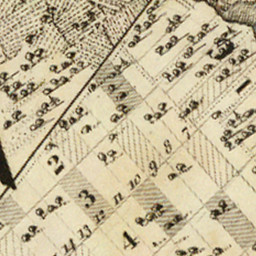 7
8
9
10
11
12
13
14
2
3
4